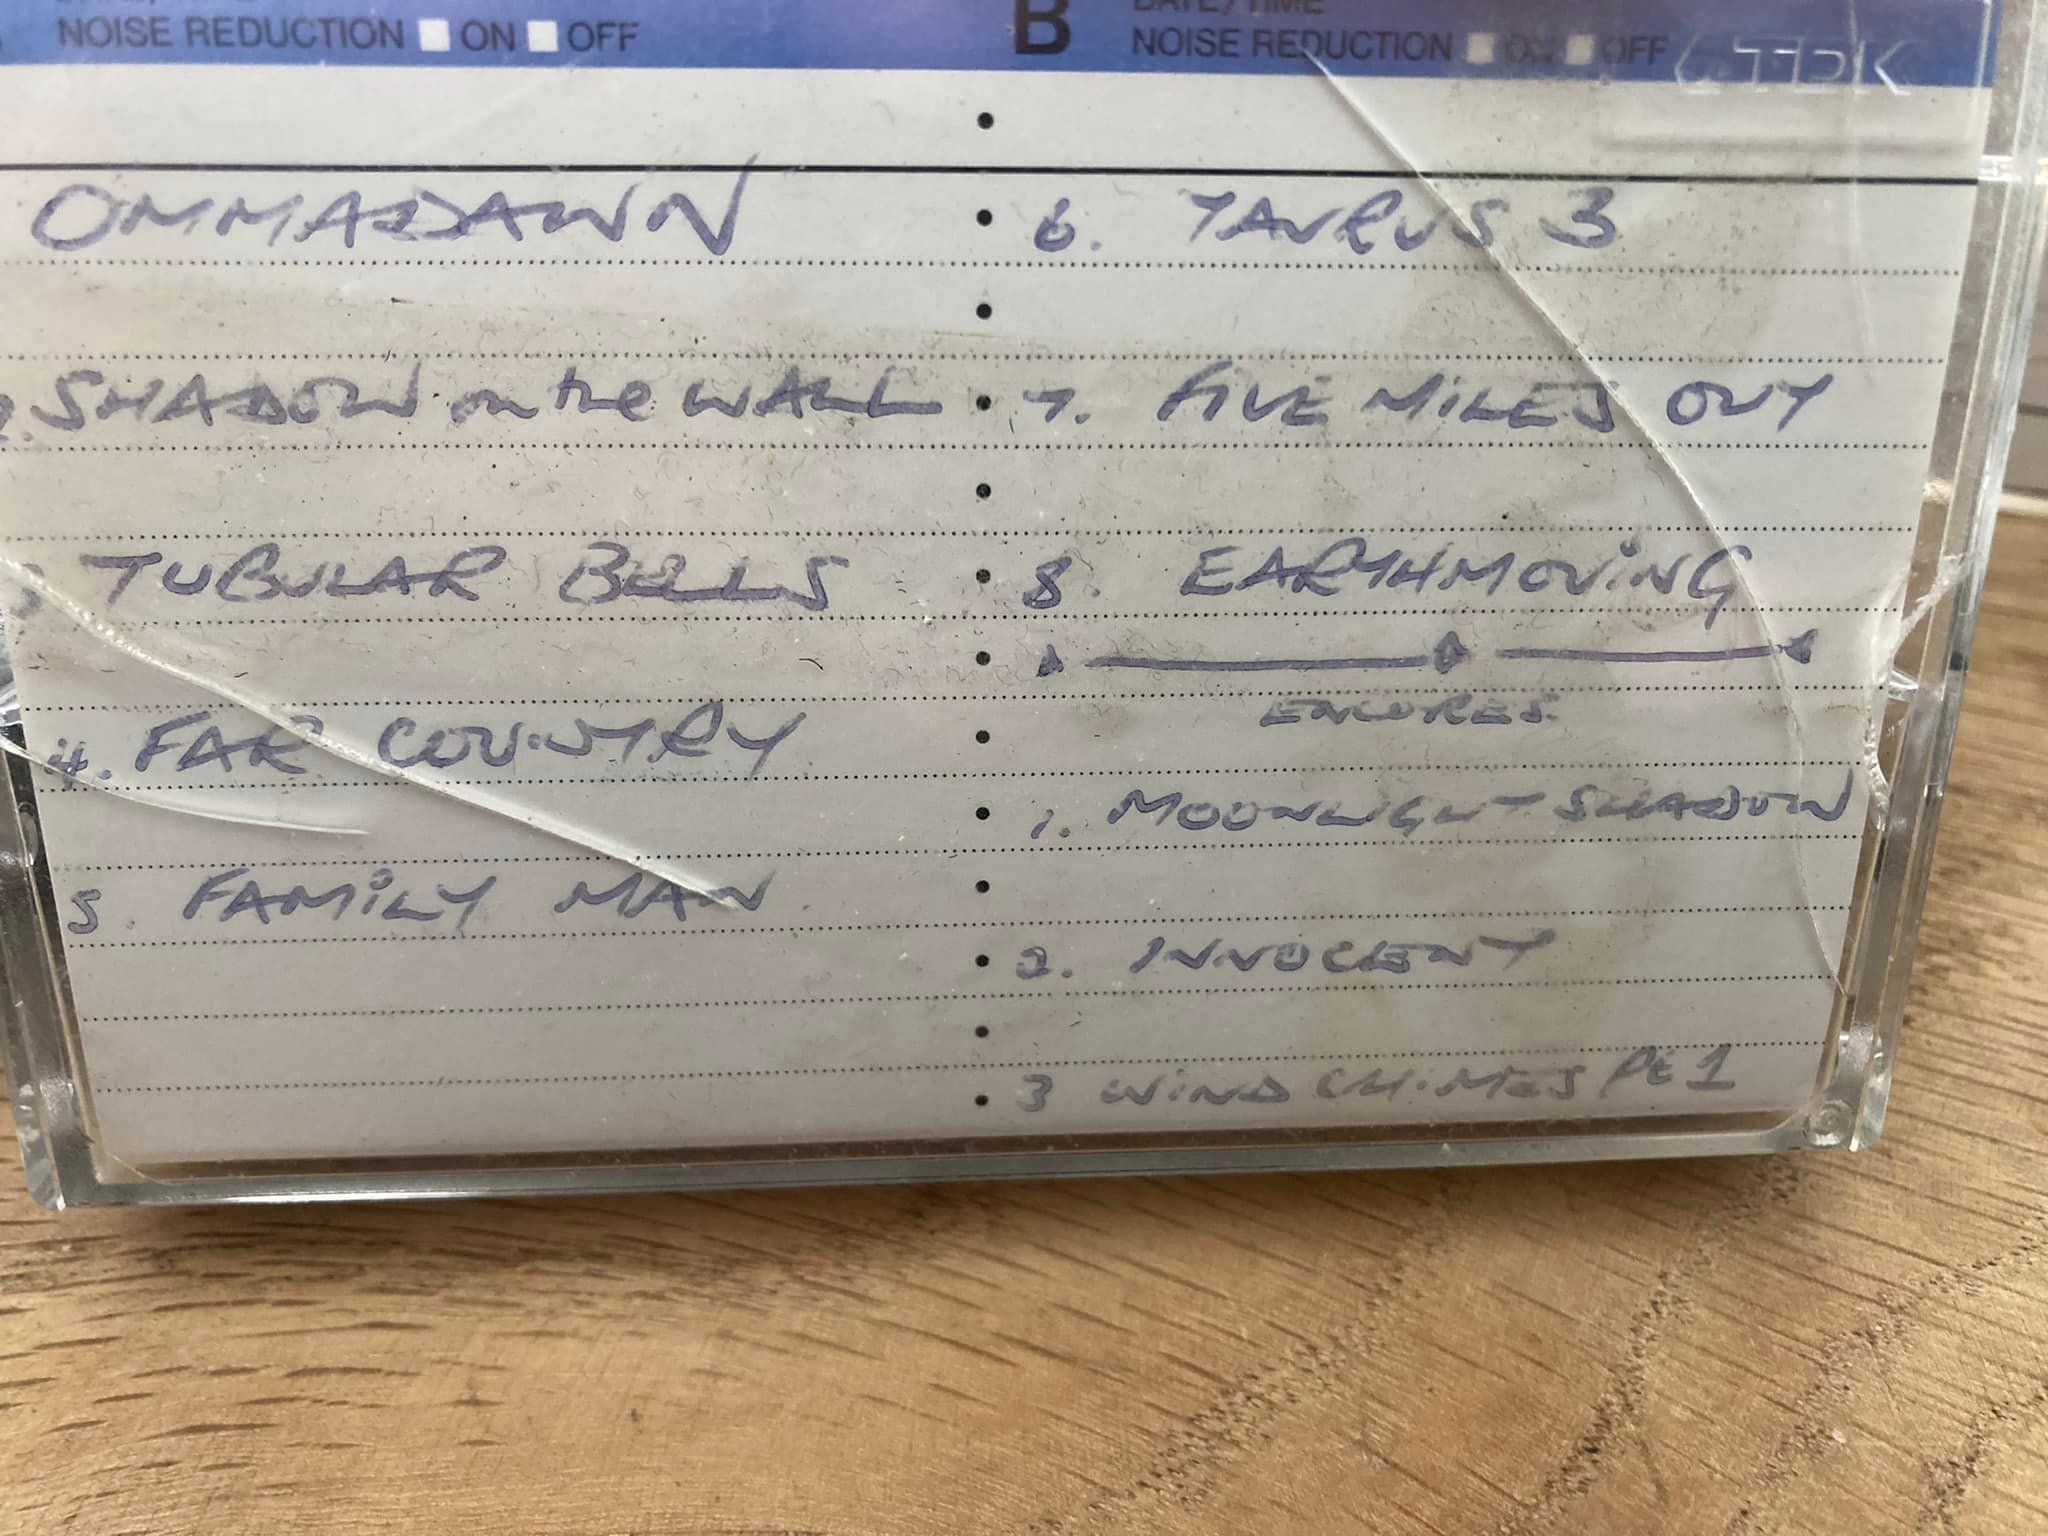 NOISE REDUCTION ON OFF
B DATE/TIME
NOISE REDUCTION ON OFF
TDK
OMMADAWN
2. SHADOW on the WALL
3 TUBULAR BELLS
4. FAR COUNTRY
5. FAMiLY MAN
6. TAURUS 3
7. FIVE MILES OUT
8. EARTHMOViNG
ENCORES
1. MOONLIGHT SHADOW
2. INNOCENT
3 WiND CHiMES Pt 1